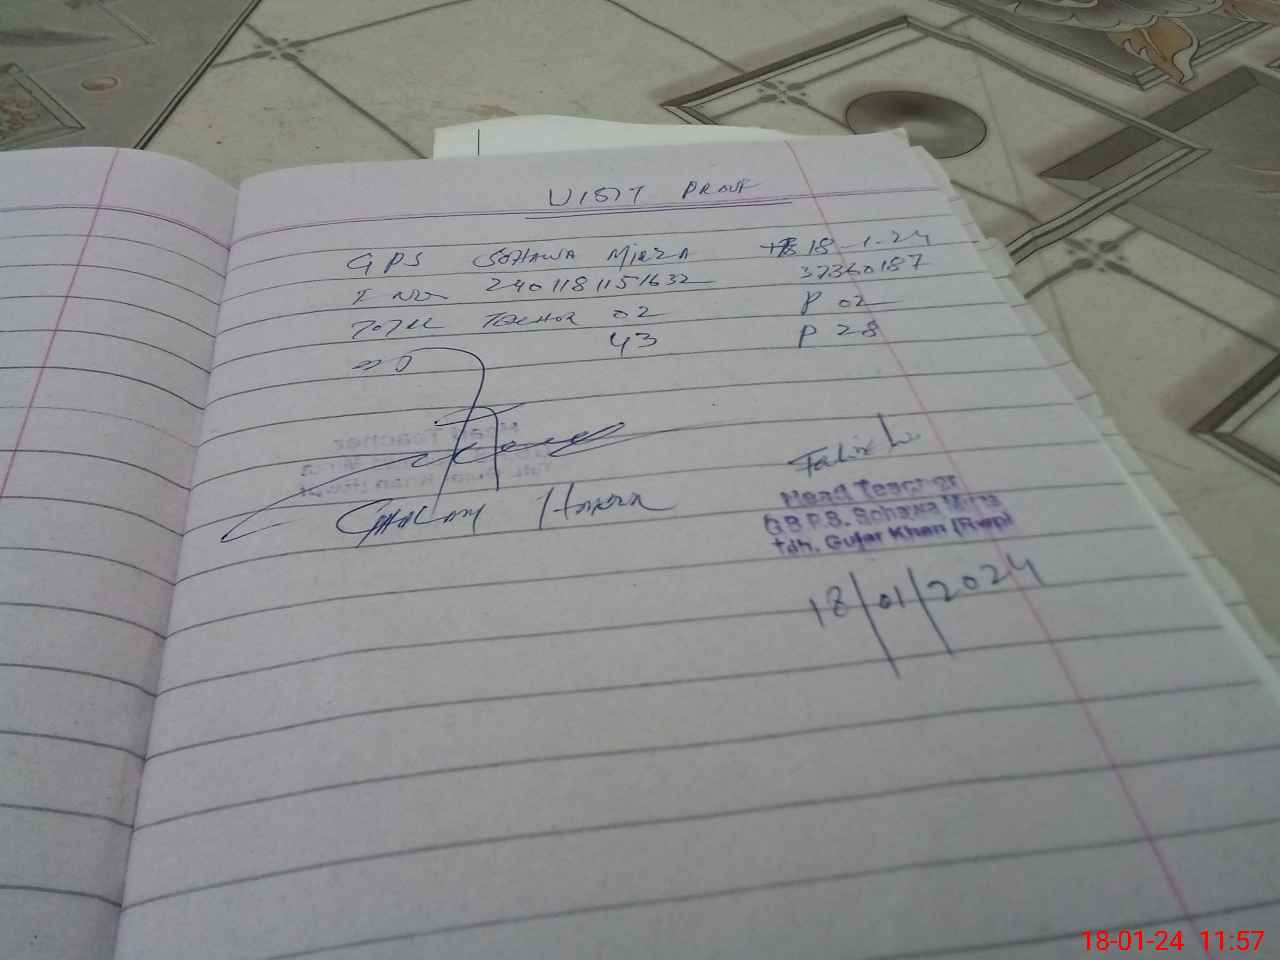 VISIT PROUF
GPS SOHAWA MIRZA 18-1-24
I NO 240118 1151632 37360187
TOTAL TEACHOR 02 P 02
43 P 28
Head Teacher
GBPS. Sohawa Mirza
Teh. Gujar Khan (Rwp)
18/01/2024
18-01-24 11:57